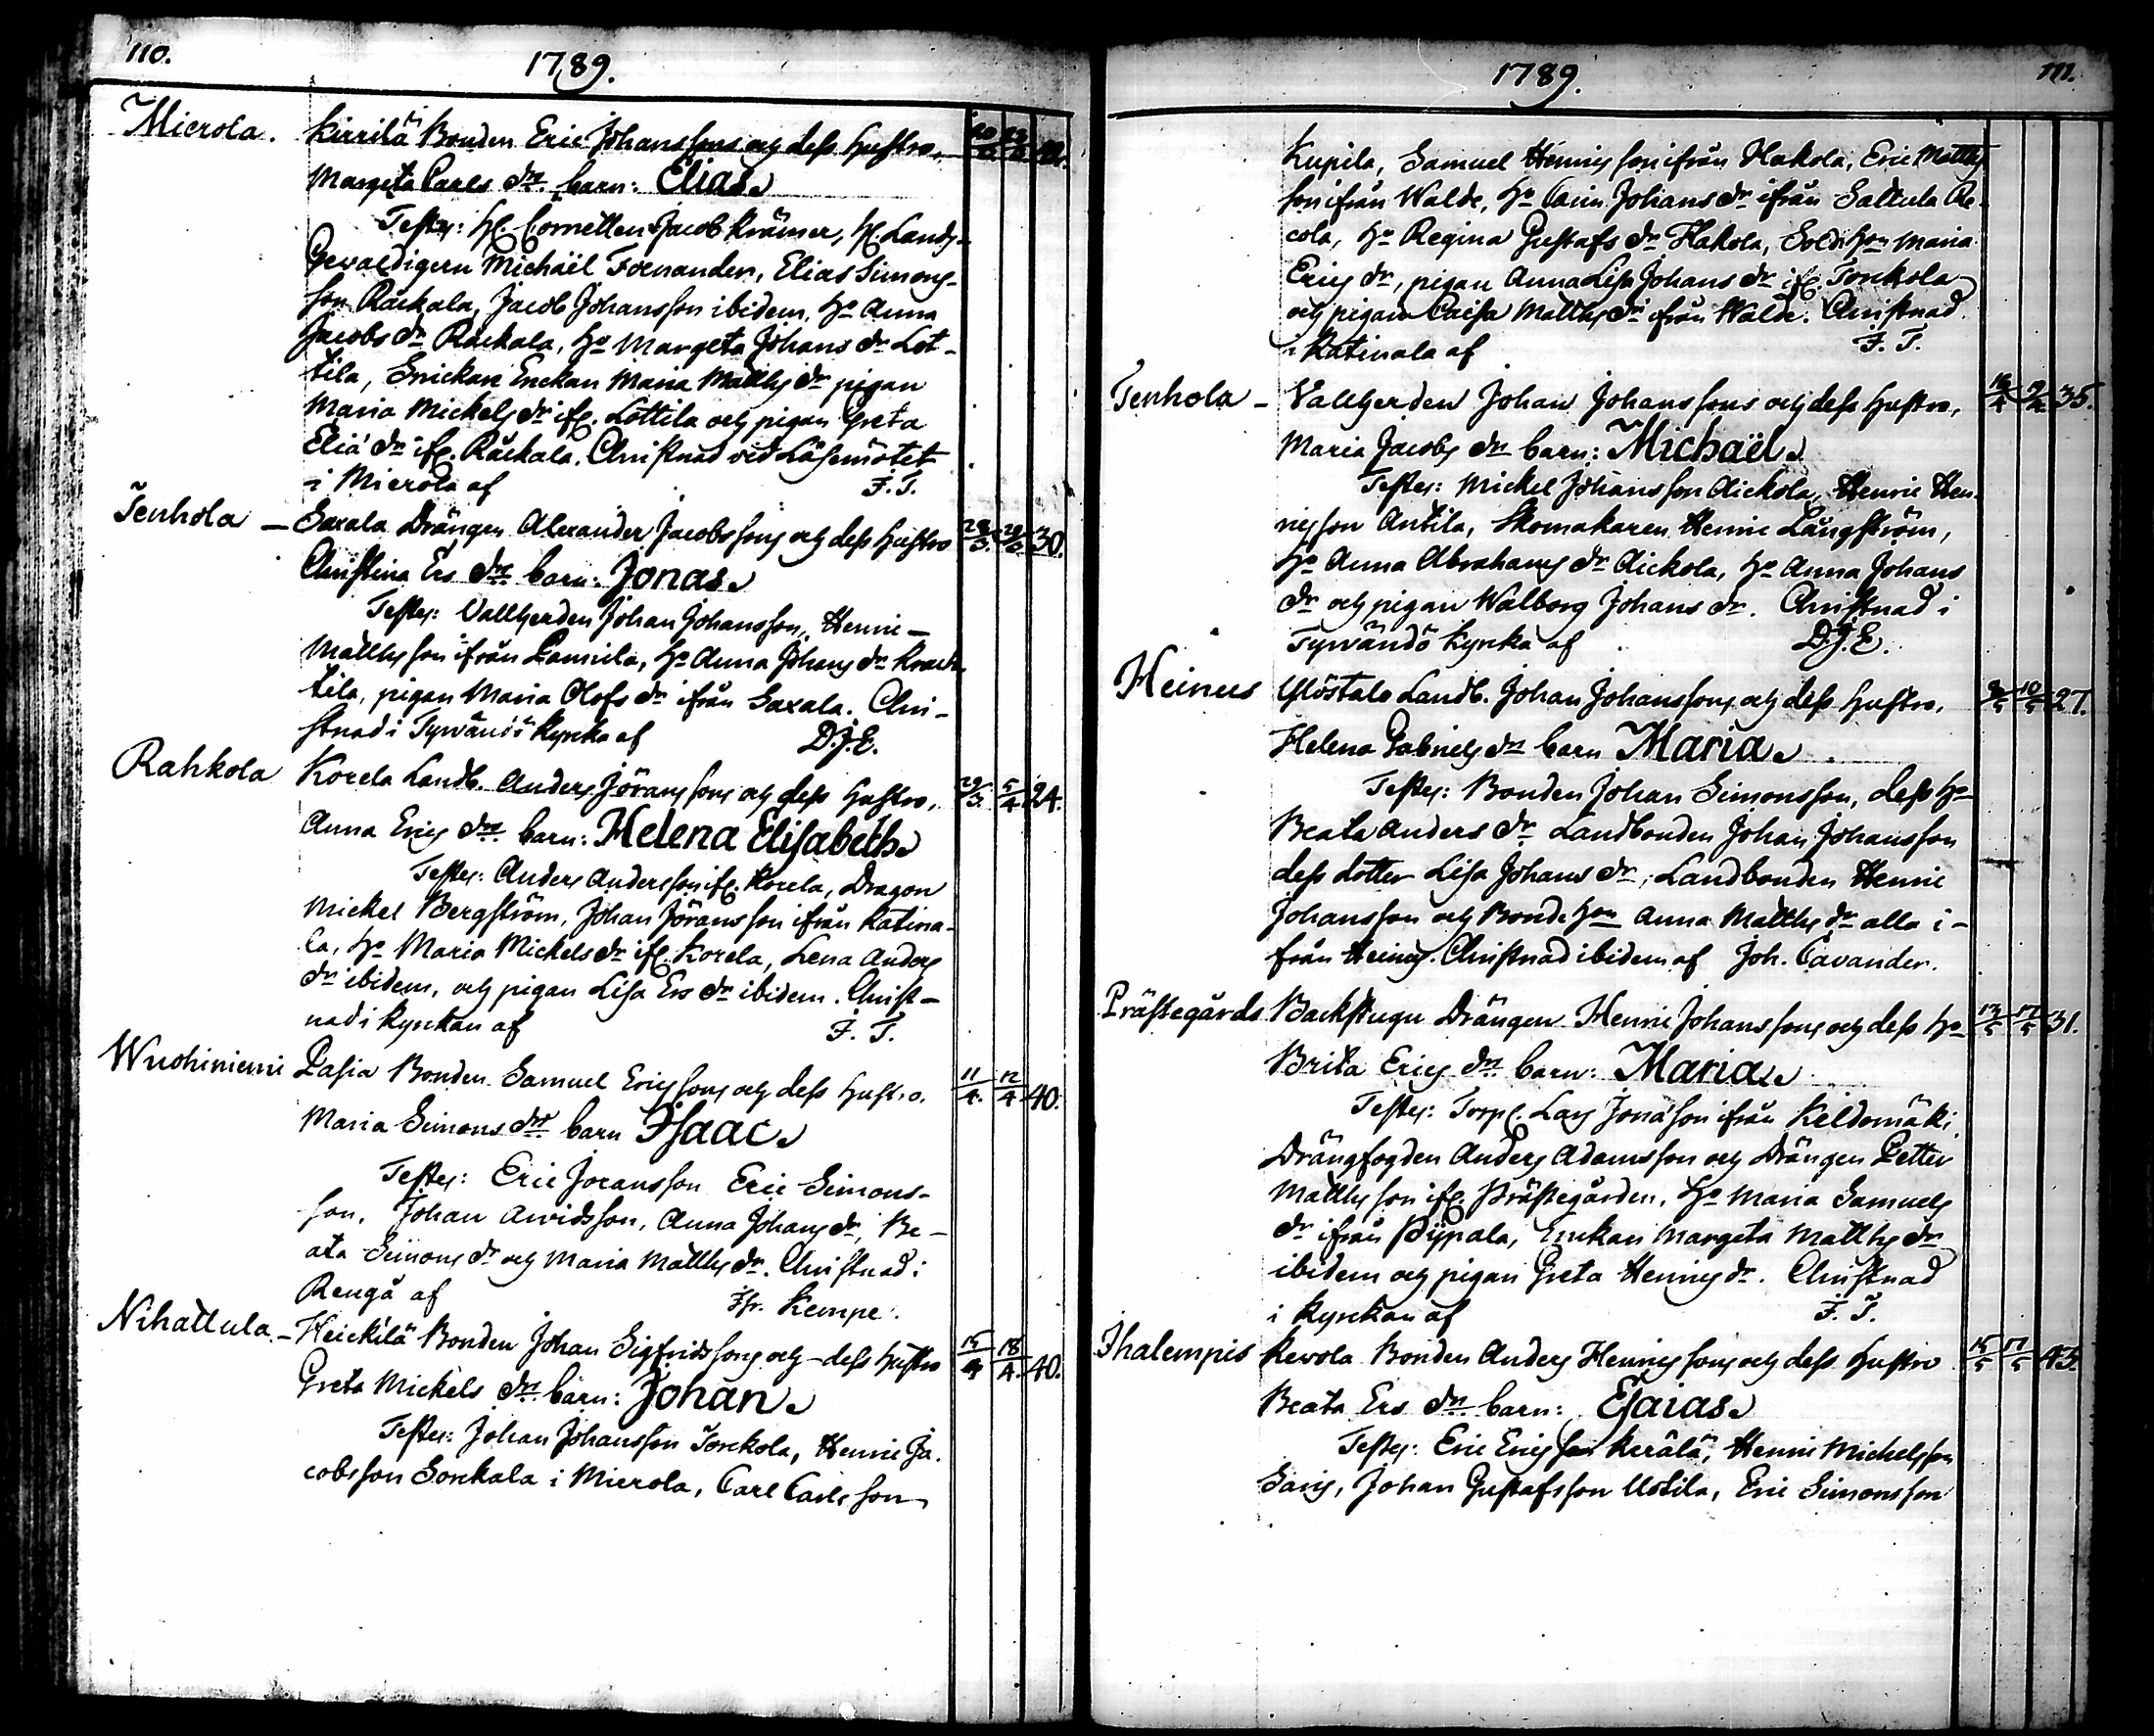 110.
1789.
Mierola. Kirrilä Bonden Eric Johanssons och dess hustro,
Margeta Carls dr. barn: Elias.
Testes: H. Cornetten Jacob Krämer, H. Lands-
Gevaldigern Michaël Fornander, Elias Simons-
son Räikala, Jacob Johansson ibidem, Ho Anna
Jacobs dr Räikala, Ho Margeta Johans dr Lot-
tila, Enckan Maria Matths dr pigan
Maria Mickels dr ifr. Lottila och pigan Greta
Eliæ dr ifr. Räikala. Christnad vid Läsemötet
i Mierola af F. T.
Tenhola – Saxala Drängen Alexander Jacobssons och dess hustro 28/3. 29/3 30.
Christina Ers dr barn: Jonas.
Testes: Vallherden Johan Johansson, Henric
Mattsson ifrån Pamila, Ho Anna Johans dr
tila, pigan Maria Olofs dr ifrån Saxala. Chri-
stnad i Tyrvändö kyrka af D.J.E.
Rahkola Korela Landb. Anders Jöranssons och dess hustro, 29/3. 5/4 24.
Anna Erics dr barn: Helena Elisabeth.
Testes: Anders Andersson ifr. Korela, Dragon
Mickel Bergström, Johan Jöransson ifrån Katina-
la, Ho Maria Mickels dr ifr. Korela, Lena Anders
dr ibidem, och pigan Lisa Ers dr ibidem. Christ-
nad i kyrckan af F. T.
Wuohiniemi Pasia Bonden Samuel Ericssons och dess hustro. 11/4. 12/4. 40.
Maria Simons dr barn Isaac.
Testes: Eric Joransson Eric Simons-
son, Johan Arvidsson, Anna Johans dr, Be-
ata Simons dr och Maria Matths dr. Christnad i
Rengå af Hr. Kempe.
Nihattula – Heickilä Bonden Johan Sigfridssons och dess hustro 15/4 18/4. 40.
Greta Mickels dr barn: Johan.
Testes: Johan Johansson Torckola, Henric Ja-
cobsson Sorckala i Mierola, Carl Carlsson
1789.
111.
Kupila, Samuel Henricsson ifrån Hakola, Eric Matths
son ifrån Walde, Ho Carin Johans dr ifrån Sattula Re-
cola, Ho Regina Gustafs dr Hakola, Sold. Hon Maria
Erics dr, pigan Anna Lisa Johans dr ifr. Torckola
och pigan Caisa Matths dr ifrån Walde. Christnad
i Katinala af F. T.
Tenhola – Vallherden Johan Johanssons och dess hustro, 35.
Maria Jacobs dr barn: Michaël.
Testes: Mickel Johansson Aickola, Henric Hen-
ricsson Antila, Skomakaren Henric Långström,
Ho Anna Abrahams dr Aickola, Ho Anna Johans
dr och pigan Walborg Johans dr. Christnad i
Tyrvändö kyrka af D.J.E.
Heinus Ylöstalo Landb. Johan Johanssons och dess hustro, 10/5 27.
Helena Gabriels dr barn Maria.
Testes: Bonden Johan Simonsson, dess Ho
Beata Anders dr Landbonden Johan Johansson
dess dotter Lisa Johans dr, Landbonden Henric
Johansson och Bonde Hon Anna Matths dr alla i-
från Heinus. Christnad ibidem af Joh. Cavander.
Prästegårds Backstugu Drängen Henric Johanssons och dess Ho 13/5 17/5 31.
Brita Erics dr barn: Maria.
Testes: Torp. Lars Jonæson ifrån Keldomäki,
Drängfogden Anders Adamsson och Drängen Petter
Mattsson ifr. Prästegården, Ho Maria Samuels
dr ifrån Pyypala, Enckan Margeta Matths dr
ibidem och pigan Greta Henrics dr. Christnad
i kyrckan af F. T.
Ihalempis Rekola Bonden Anders Henricssons och dess hustro 15/5 17/5 43.
Beata Ers dr barn: Esaias.
Testes: Eric Ericsson Kerälä, Henric Michelsson
Saris, Johan Gustafsson Ustila, Eric Simonsson